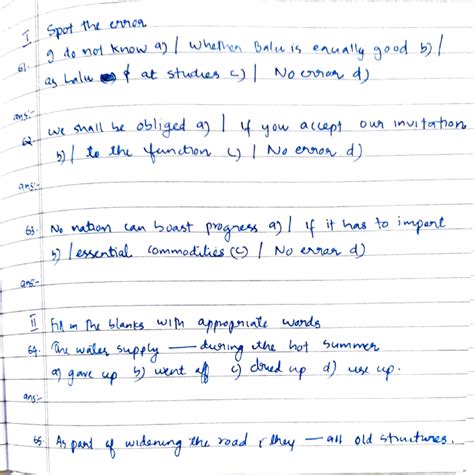 I Spot the error
61. I do not know a) / whether Balu is equally good b) /
as balu & at studies c) / No error d)
ans:-
62. we shall be obliged a) / if you accept our invitation
b) / to the function c) / No error d)
ans:-
63. No nation can boast progress a) / if it has to import
b) / essential commodities (c) / No error d)
ans-
II Fill in the blanks with appropriate words
64. The water supply — during the hot summer
a) gave up b) went off c) dried up d) use up.
ans:-
65. As part of widening the road, they — all old structures.